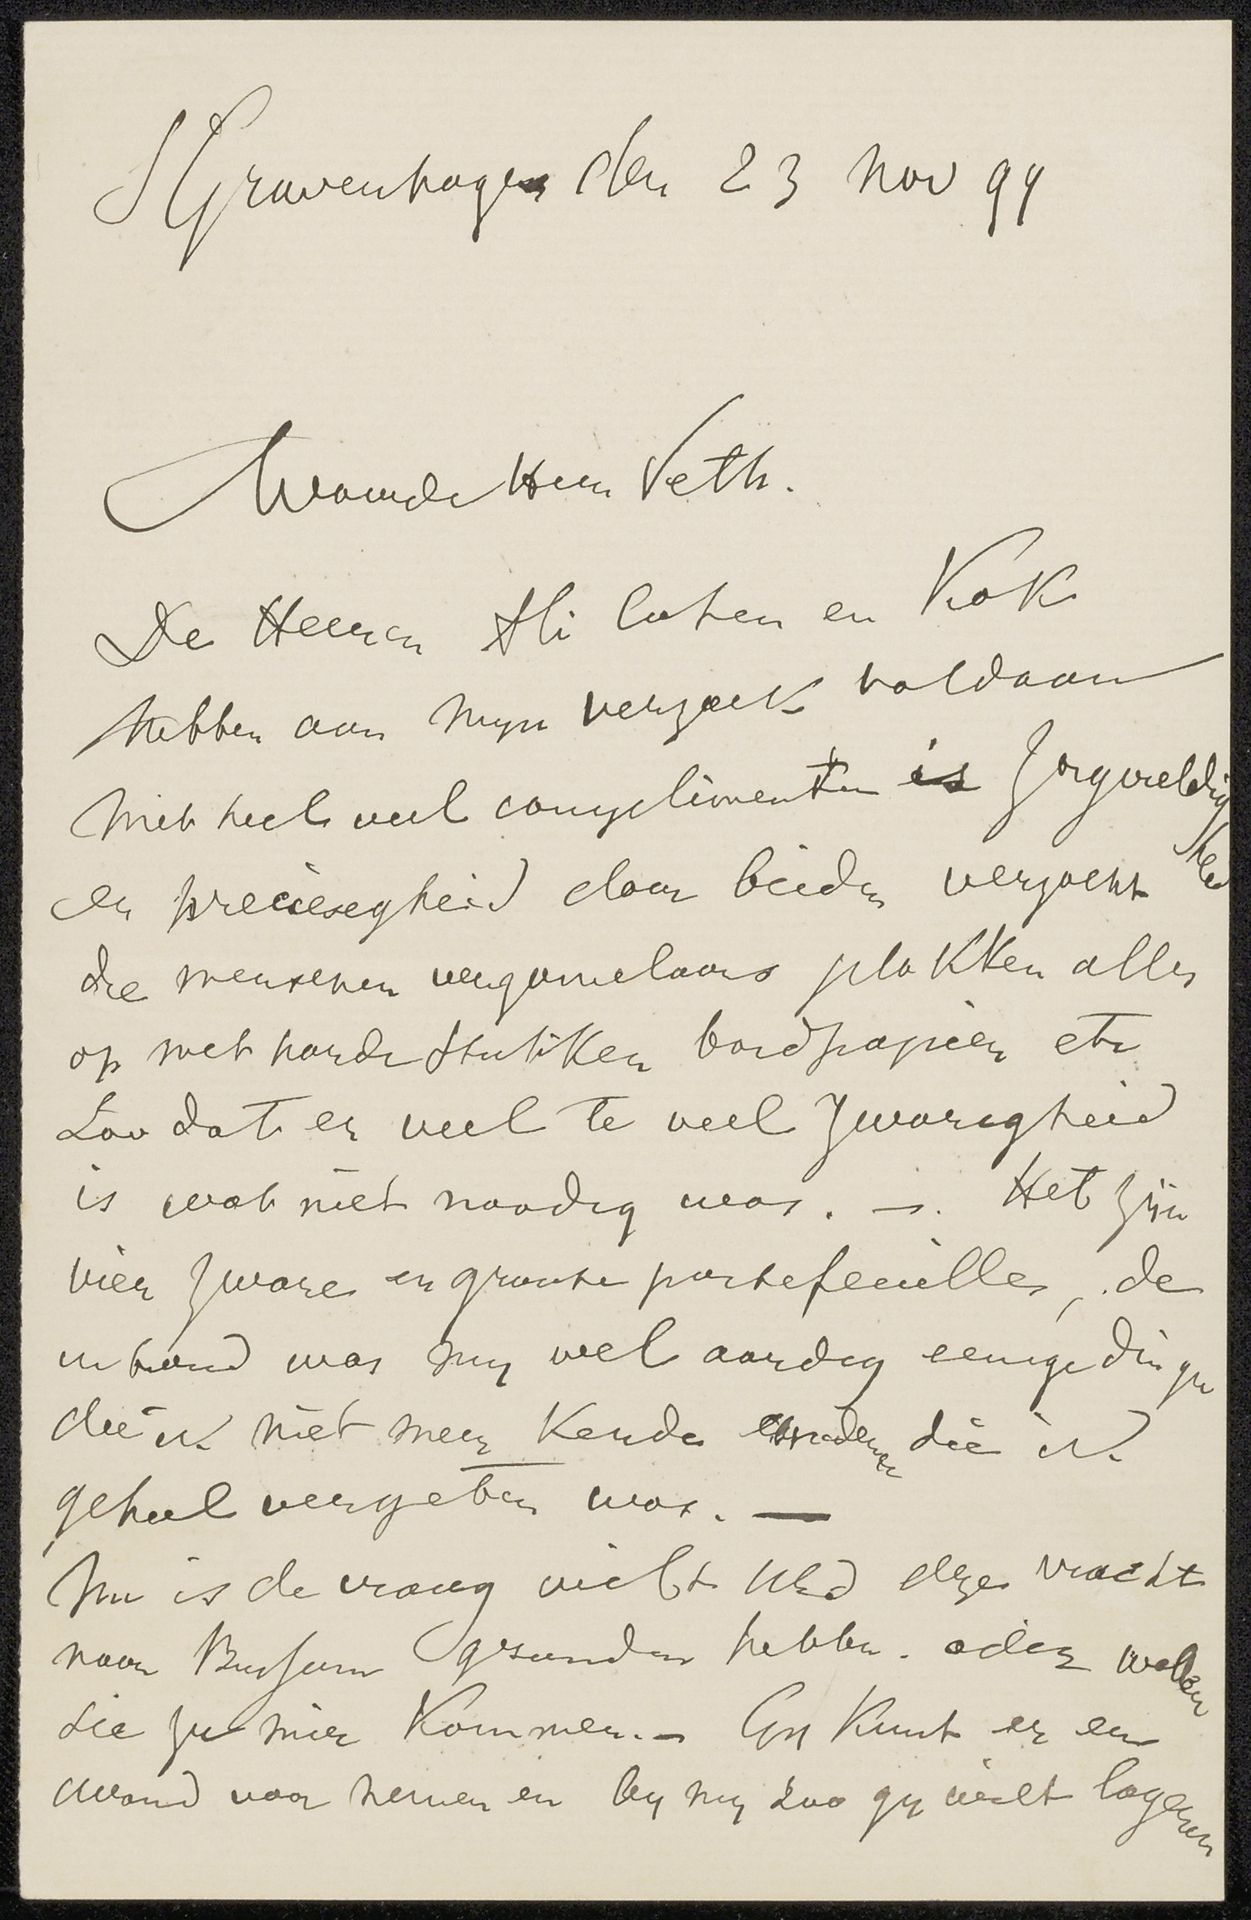 S Gravenhagen den 23 nov 94
Waarde Heer Veth.
De Heeren Ali Cohen en Kok
hebben aan mijn verzoek voldaan
Met heel veel complimenten is Zorgvuldigheid
en preciesegheid door beiden verzocht
die menschen verzamelaars plakken alles
op met harde Stukken bordpapier etc
Zoo dat er veel te veel Zwaregheid
is wat niet noodig was. –. Het zijn
vier Zware en groote portefeuilles, de
inhoud was mij wel aardig eenige dingen
die ik niet meer Kende en andere die ik
geheel vergeten was. —
Nu is de vraag wielst UEd deze vracht
naar Bussum gesunden hebben. oder wollen
Sie zu mier Kommen. – Gij Kunt er een
avond voor nemen en bij mij zoo gij wielt logeeren